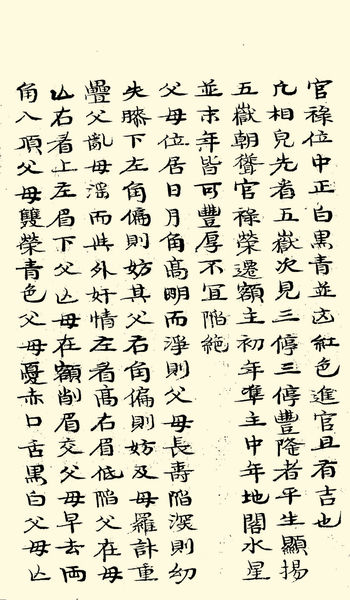 官祿位中正白黑青並凶紅色進官且有吉也
凢相皃先看五嶽次見三停三停豐隆者平生顯揚
五嶽朝聳官祿榮遷額主初年準主中年地閣水星
並末年皆可豐厚不冝陷絶
父母位居日月角髙明而淨則父母長壽陷深則幼
失膝下左角偏則妨其父右角偏則妨及母羅計重
疊父亂母淫而此外奸情左者髙右眉低陷父在母
亾右看上左眉下父亾母在額削眉交父母早去兩
角八頂父母雙榮青色父母憂赤口舌黒白父母亾